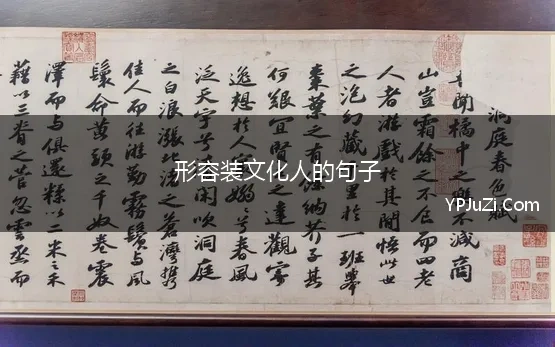 形容装文化人的句子
YPJuZi.Com
洞庭春色賦
聞橘中之樂不減商
山豈霜餘之不食而四老
人者游戲於其間悟此世
之泡幻藏里於一班舉
棗葉之有餘納芥子其
何艱宜賢之達觀寄
逸想於人嫋兮春風
泛天宇兮閑吹洞庭
之白浪漲北渚之蒼灣攜
佳人而往游勤霧鬢與風
鬟命黃頭之千奴卷震
澤而與俱還糅以二米之禾
藉以三脊之菅忽雲烝而